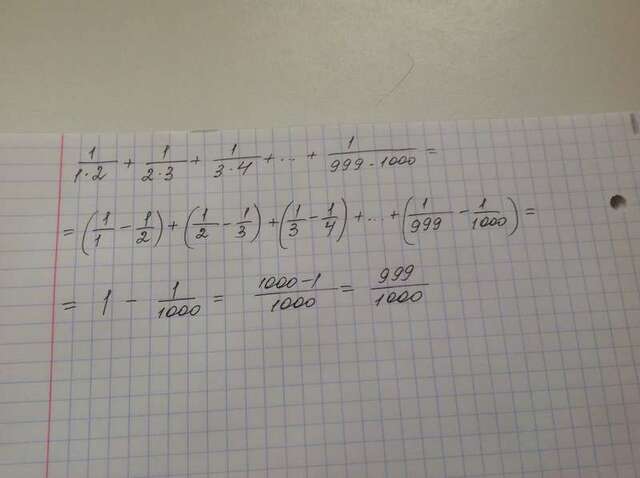 1/(1·2) + 1/(2·3) + 1/(3·4) + ... + 1/(999·1000) =
= (1/1 − 1/2) + (1/2 − 1/3) + (1/3 − 1/4) + ... + (1/999 − 1/1000) =
= 1 − 1/1000 = (1000−1)/1000 = 999/1000